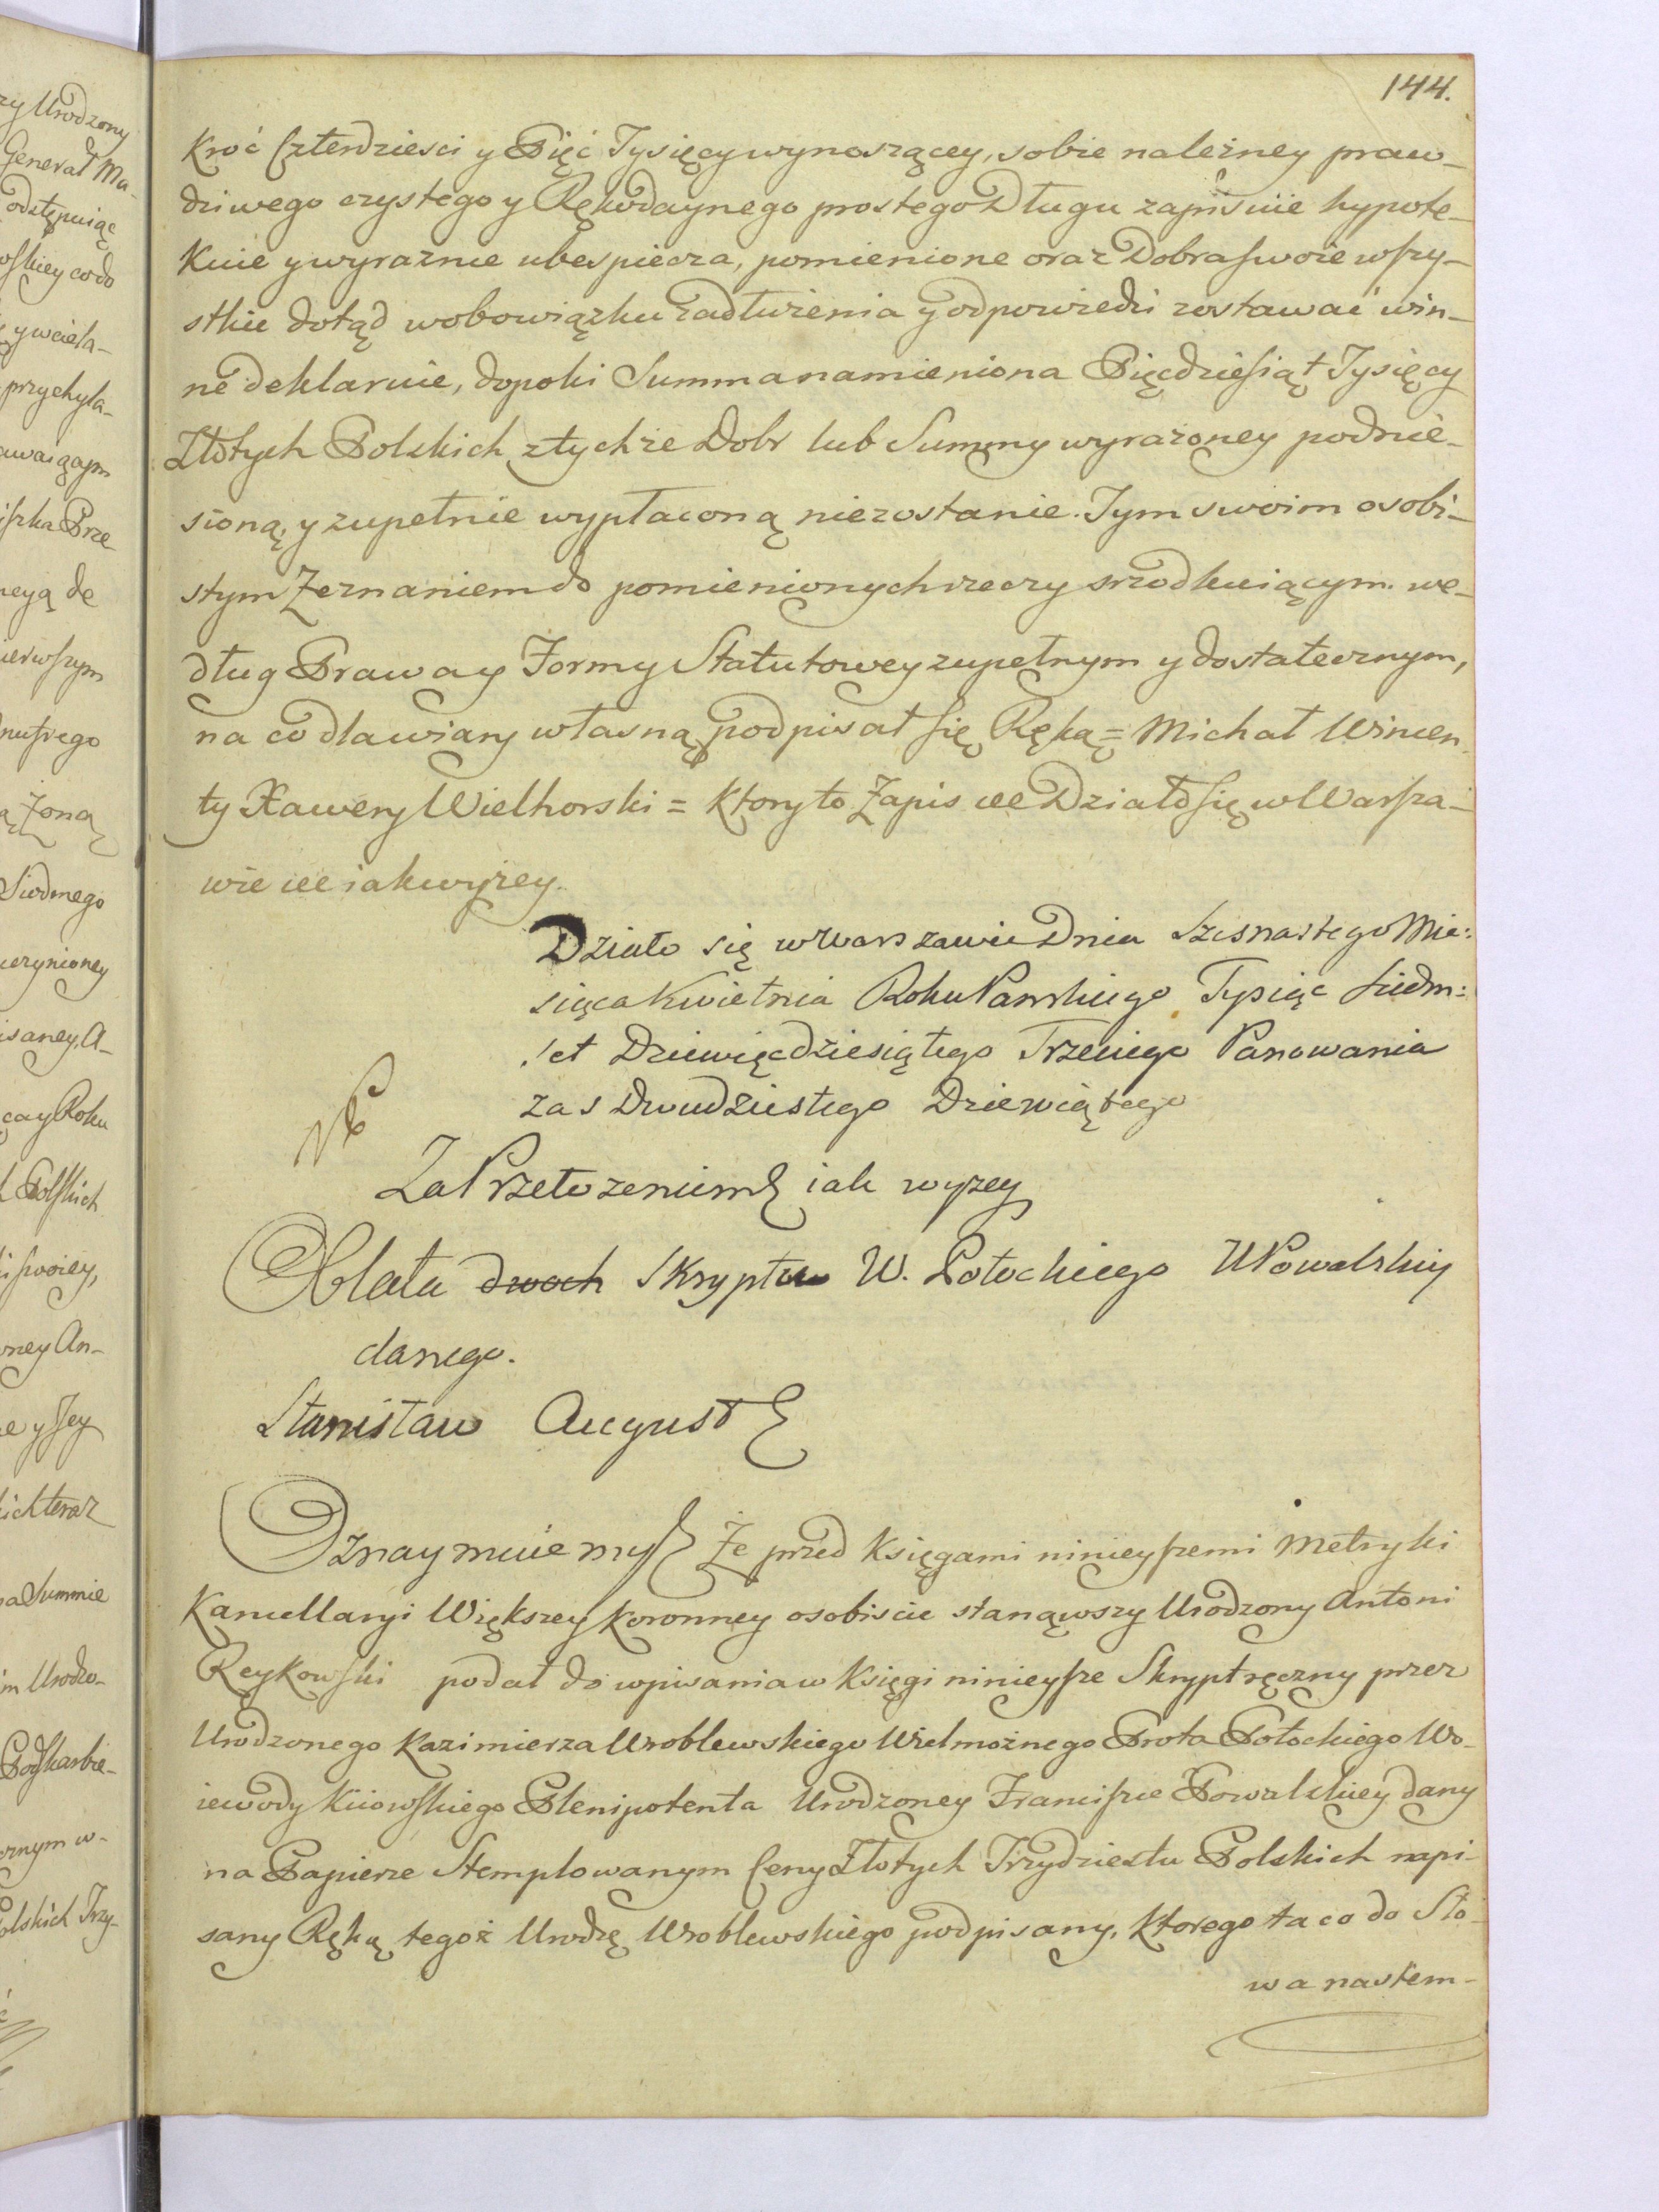 144.
Kroć Czterdzieści y Pięć Tysięcy wynoszącey, sobie należney praw-
dziwego czystego y Rękodaynego prostego Długu zapisuie hypote-
kuie y wyraznie ubespiecza, pomienione oraz Dobra swoie wszy-
stkie dotąd wobowiązku zadłużenia y odpowiedzi zostawać win-
ne deklaruie, dopoki Summa namieniona Pięćdziesiąt Tysięcy
Złotych Polskich ztychże Dobr lub Summy wyrażoney podnie-
sioną, y zupełnie wypłaconą niezostanie. Tym swoim osobi-
stym Zeznaniem do pomienionych rzeczy srzodkuiącym we-
dług Prawa y Formy Statutowey zupełnym y dostatecznym,
na co dla wiary własną podpisał się Ręką = Michał Wincen
ty Xawery Wielhorski = Ktory to Zapis ee Działo się w Warsza-
wie ee iak wyżey.
Działo się w Warszawie Dnia Szesnastego Mie:
siąca Kwietnia Roku Panskiego Tysiąc Siedm:
set Dziewięcdziesiątego Trzeciego Panowania
zas Dwudziestego Dziewiątego
Za Przełozeniem iak wyżey
Oblata dwoch Skryptu W. Potockiego U Powalskiey
danego.
Stanisław August
Oznaymuiemy Że przed Księgami ninieyszemi Metryki
Kancellaryi Większey Koronney osobiscie stanąwszy Urodzony Antoni
Reykowski podał do wpisania w Księgi ninieysze Skrypt ręczny przez
Urodzonego Kazimierza Wroblewskiego Wielmożnego Prota Potockiego Wo-
iewody Kiiowskiego Plenipotenta Urodzoney Franciszce Powalskiey dany
na Papierze Stemplowanym Ceny Złotych Trzydziestu Polskich napi-
sany Ręką tegoż Urodzę Wroblewskiego podpisany, ktorego ta co do Sło-
wa nastem-